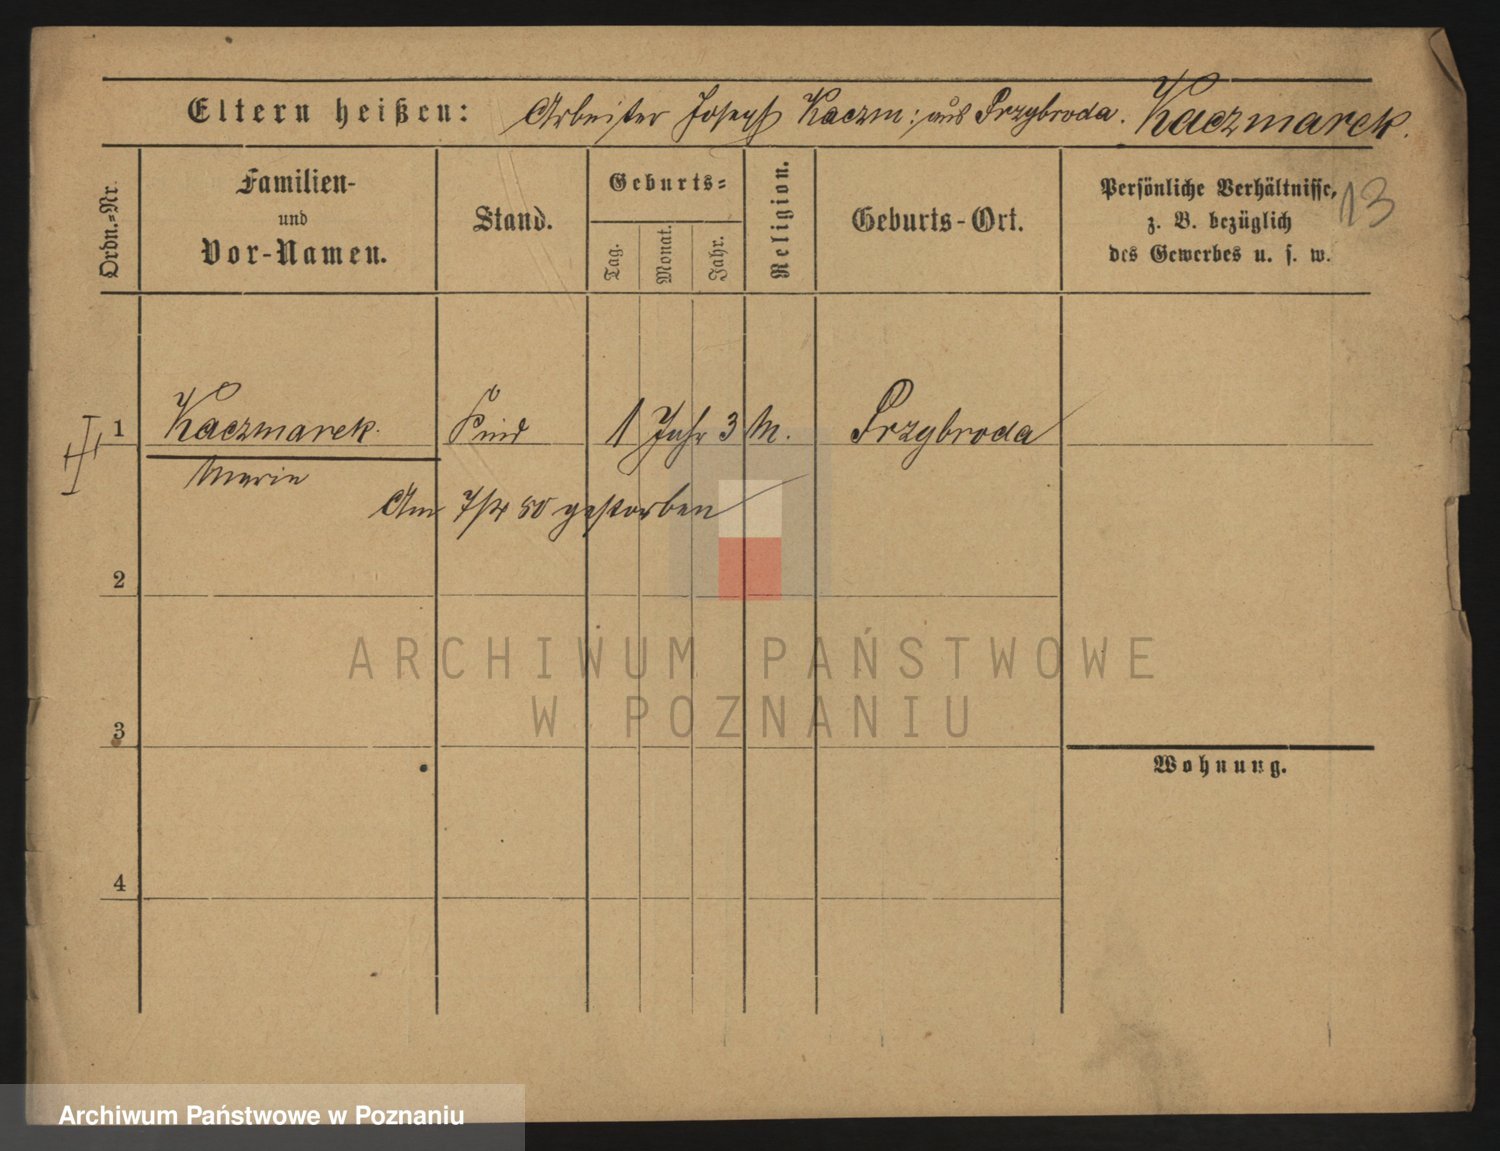 Eltern heißen: Arbeiter Joseph Kaczm: aus Przybroda. Kaczmarek.
Ordn.=Nr.
Familien-
und
Vor-Namen.
Stand.
Geburts=
Tag.
Monat.
Jahr.
Religion.
Geburts-Ort.
Persönliche Verhältnisse,
z. B. bezüglich
des Gewerbes u. s. w.
13
1 Kaczmarek. Kind 1 Jahr 3 M. Przybroda
Marie
Am gestorben
2
ARCHIWUM PAŃSTWOWE
W POZNANIU
3
Wohnung.
4
Archiwum Państwowe w Poznaniu